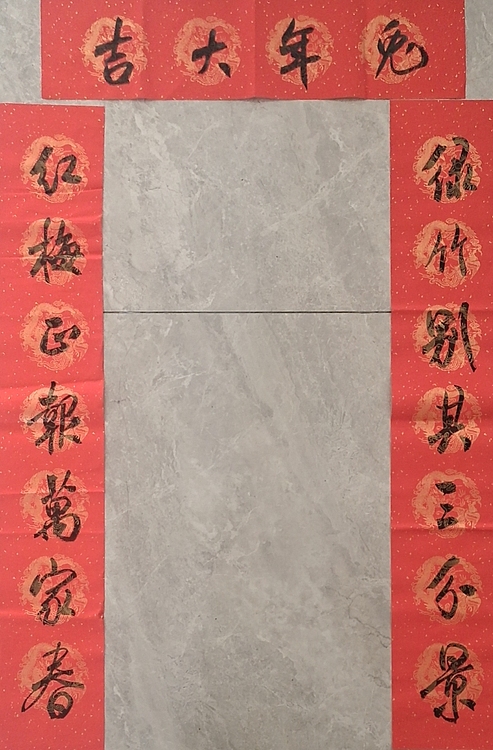 兔年大吉
绿竹别具三分景
红梅正報萬家春